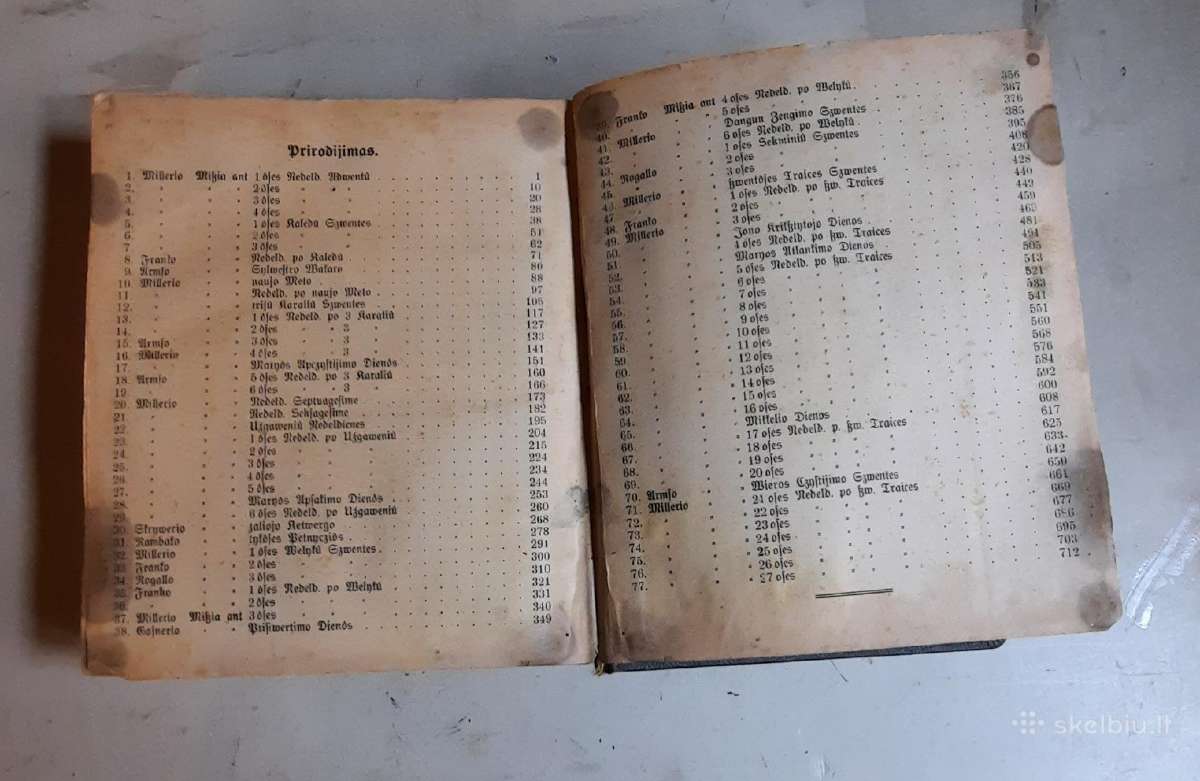 Prirodijimas.
1. Millerio Mißia ant 1 óses Nedeld. Adwentû 1
2. " " " 2 óses 10
3. " " " 3 óses 20
4. " " " 4 óses 28
5. " " " 1 óses Kaledû Szwentes 38
6. " " " 2 óses 51
7. " " " 3 óses 62
8. Franko " " Nedeld. po Kaledû 71
9. Armso " " Sylwestro Wakaro 80
10. Millerio " " naujo Meto 88
11. " " " Nedeld. po naujo Meto 97
12. " " " trisû Karaliû Szwentes 105
13. " " " 1 óses Nedeld. po 3 Karaliû 117
14. " " " 2 óses " " 3 " 127
15. Armso " " 3 óses " " 3 " 133
16. Millerio " " 4 óses " " 3 " 141
17. " " " Maryos Apczystijimo Dienos 151
18. Armso " " 5 óses Nedeld. po 3 Karaliû 160
19. " " " 6 óses " " 3 " 166
20. Millerio " " Nedeld. Septuagesime 173
21. " " " Nedeld. Seksagesime 182
22. " " " Użgaweniû Nedeldienes 195
23. " " " 1 óses Nedeld. po Użgaweniû 204
24. " " " 2 óses 215
25. " " " 3 óses 224
26. " " " 4 óses 234
27. " " " 5 óses 244
28. " " " Maryos Apsakimo Dienós 253
29. " " " 6 óses Nedeld. po Użgaweniû 260
30. Skrywerio " " żaliojo Ketwergo 268
31. Rambato " " tylóses Petnyczios 278
32. Millerio " " 1 óses Welykû Szwentes 291
33. Franko " " 2 óses 300
34. Rogallo " " 3 óses 310
35. Franko " " 1 óses Nedeld. po Welykû 321
36. " " " 2 óses 331
37. Millerio Mißia ant 3 óses 340
38. Gosnerio " " Prisiwertimo Dienós 349
39. Franko Mißia ant 4 oses Nedeld. po Welykû 356
40. " " " 5 oses 367
41. Millerio " " Dangun Żengimo Szwentes 376
42. " " " 6 oses Nedeld. po Welykû 385
43. " " " 1 oses Sekminiû Szwentes 395
44. Rogallo " " 2 oses 408
45. " " " 3 oses 420
46. Millerio " " ßwentóses Traices Szwentes 428
47. " " " 1 oses Nedeld. po ßw. Traices 440
48. Franko " " 2 oses 449
49. Millerio " " 3 oses 459
50. " " " Jono Krikßtytojo Dienos 465
51. " " " 4 oses Nedeld. po ßw. Traices 481
52. " " " Maryos Atlankimo Dienos 491
53. " " " 5 oses Nedeld. po ßw. Traices 505
54. " " " 6 oses 513
55. " " " 7 oses 521
56. " " " 8 oses 533
57. " " " 9 oses 541
58. " " " 10 oses 551
59. " " " 11 oses 560
60. " " " 12 oses 568
61. " " " 13 oses 576
62. " " " 14 oses 584
63. " " " 15 oses 592
64. " " " 16 oses 600
65. " " " Mikkelio Dienos 608
66. " " " 17 oses Nedeld. p. ßw. Traices 617
67. " " " 18 oses 625
68. " " " 19 oses 633
69. " " " 20 oses 642
70. Armso " " Wieros Czystijimo Szwentes 650
71. Millerio " " 21 oses Nedeld. po ßw. Traices 661
72. " " " 22 oses 669
73. " " " 23 oses 677
74. " " " 24 oses 686
75. " " " 25 oses 695
76. " " " 26 oses 703
77. " " " 27 oses 712
skelbiu.lt